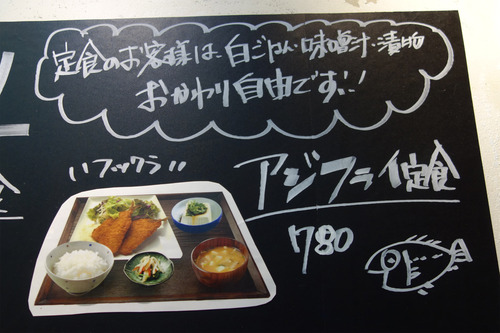 定食のお客様は、白ごはん・味噌汁・漬物
おかわり自由です!!
フックラ
アジフライ定食
780